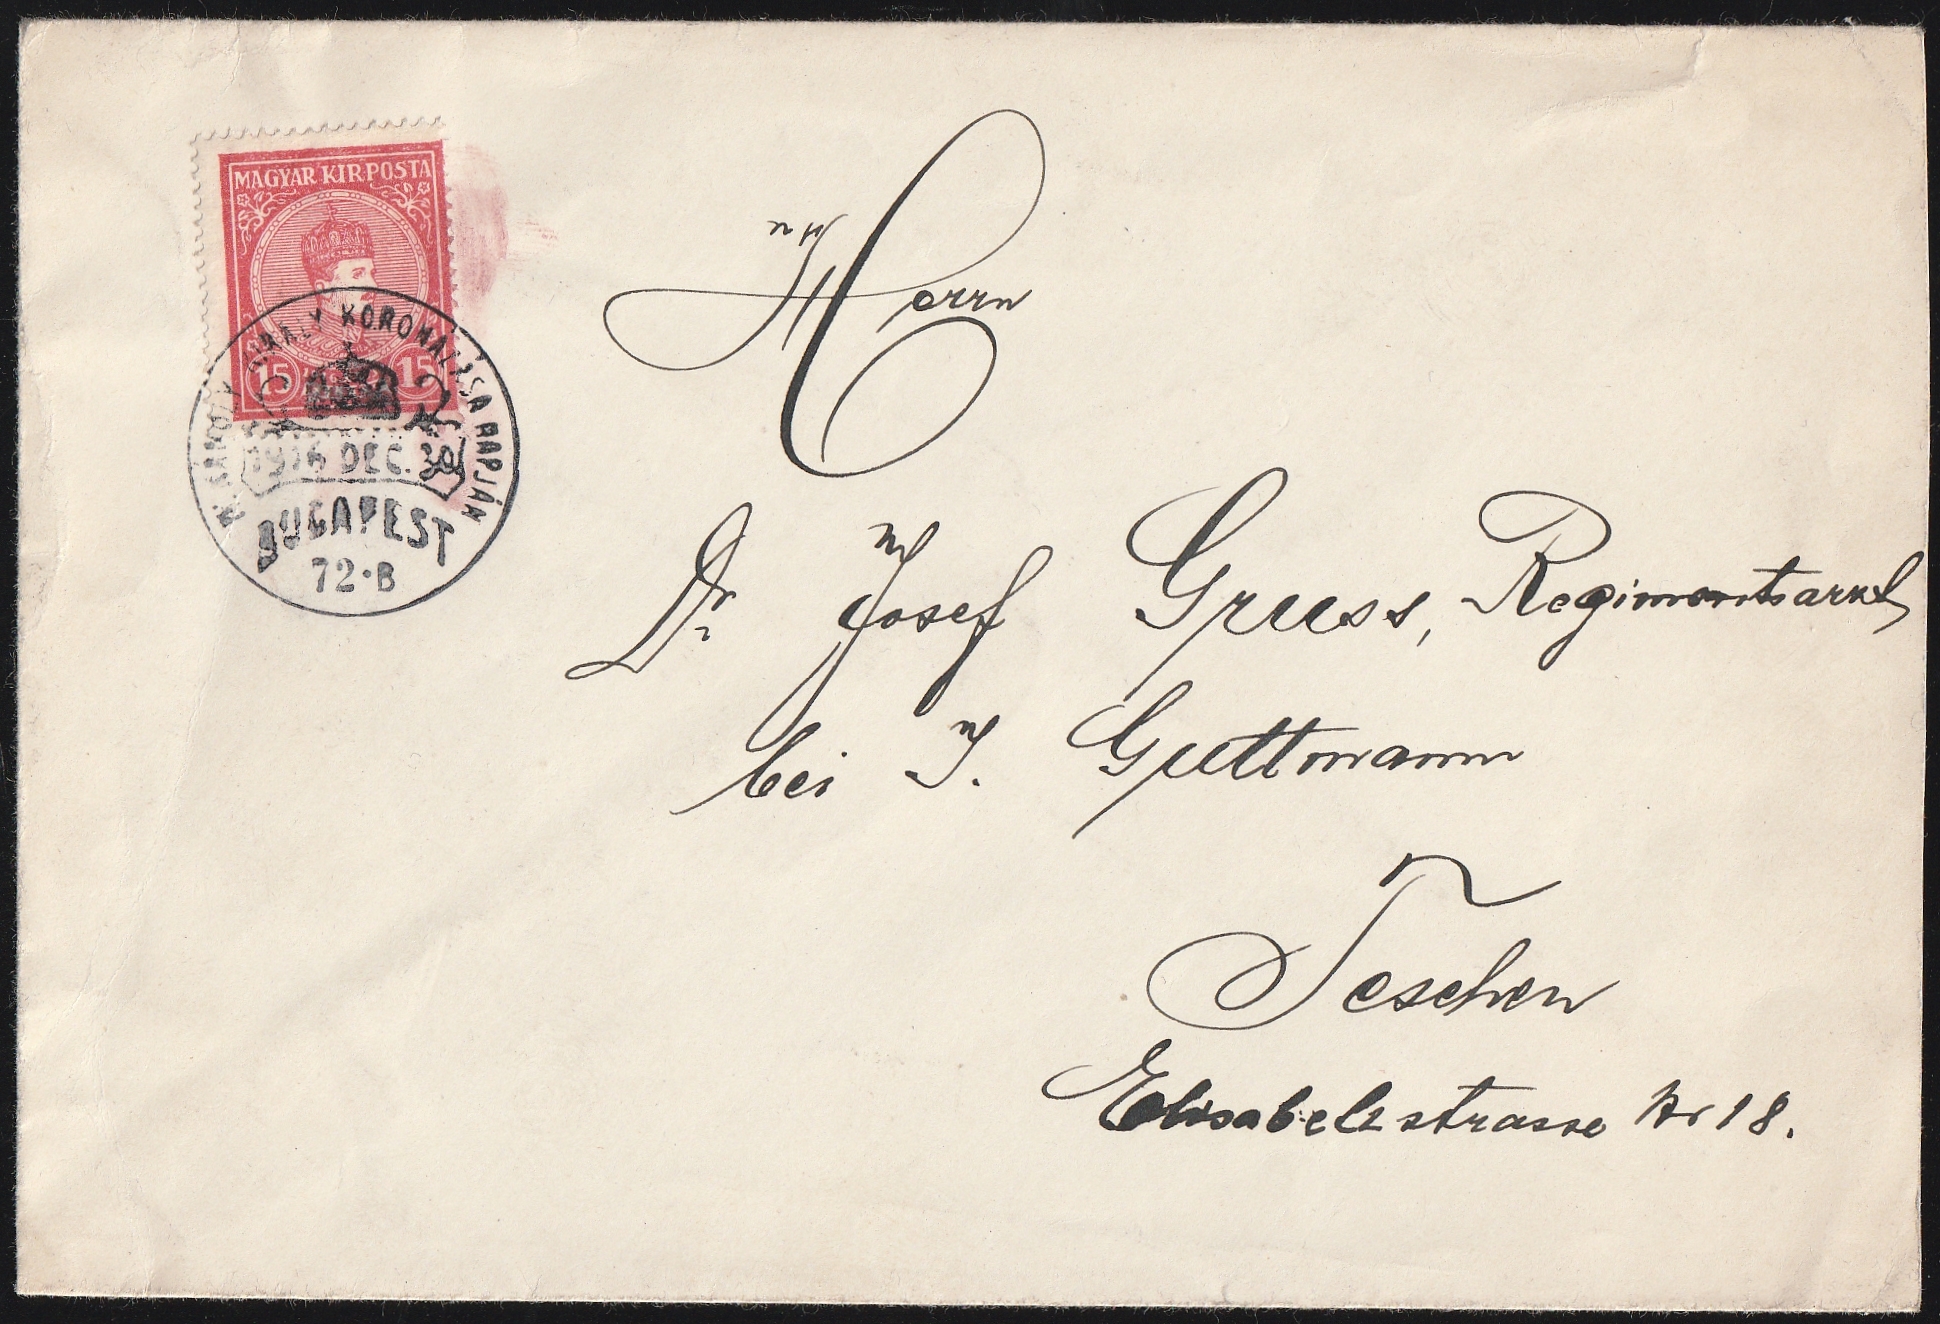 MAGYAR KIR POSTA
15 15
IV. KÁROLY KIRÁLY KORONÁZÁSA NAPJÁN
1916 DEC. 30
BUDAPEST
72·B
Herrn
Dr Josef Gruss, Regimentsarzt
bei J. Guttmann
Teschen
Elisabethstrasse Nr 18.